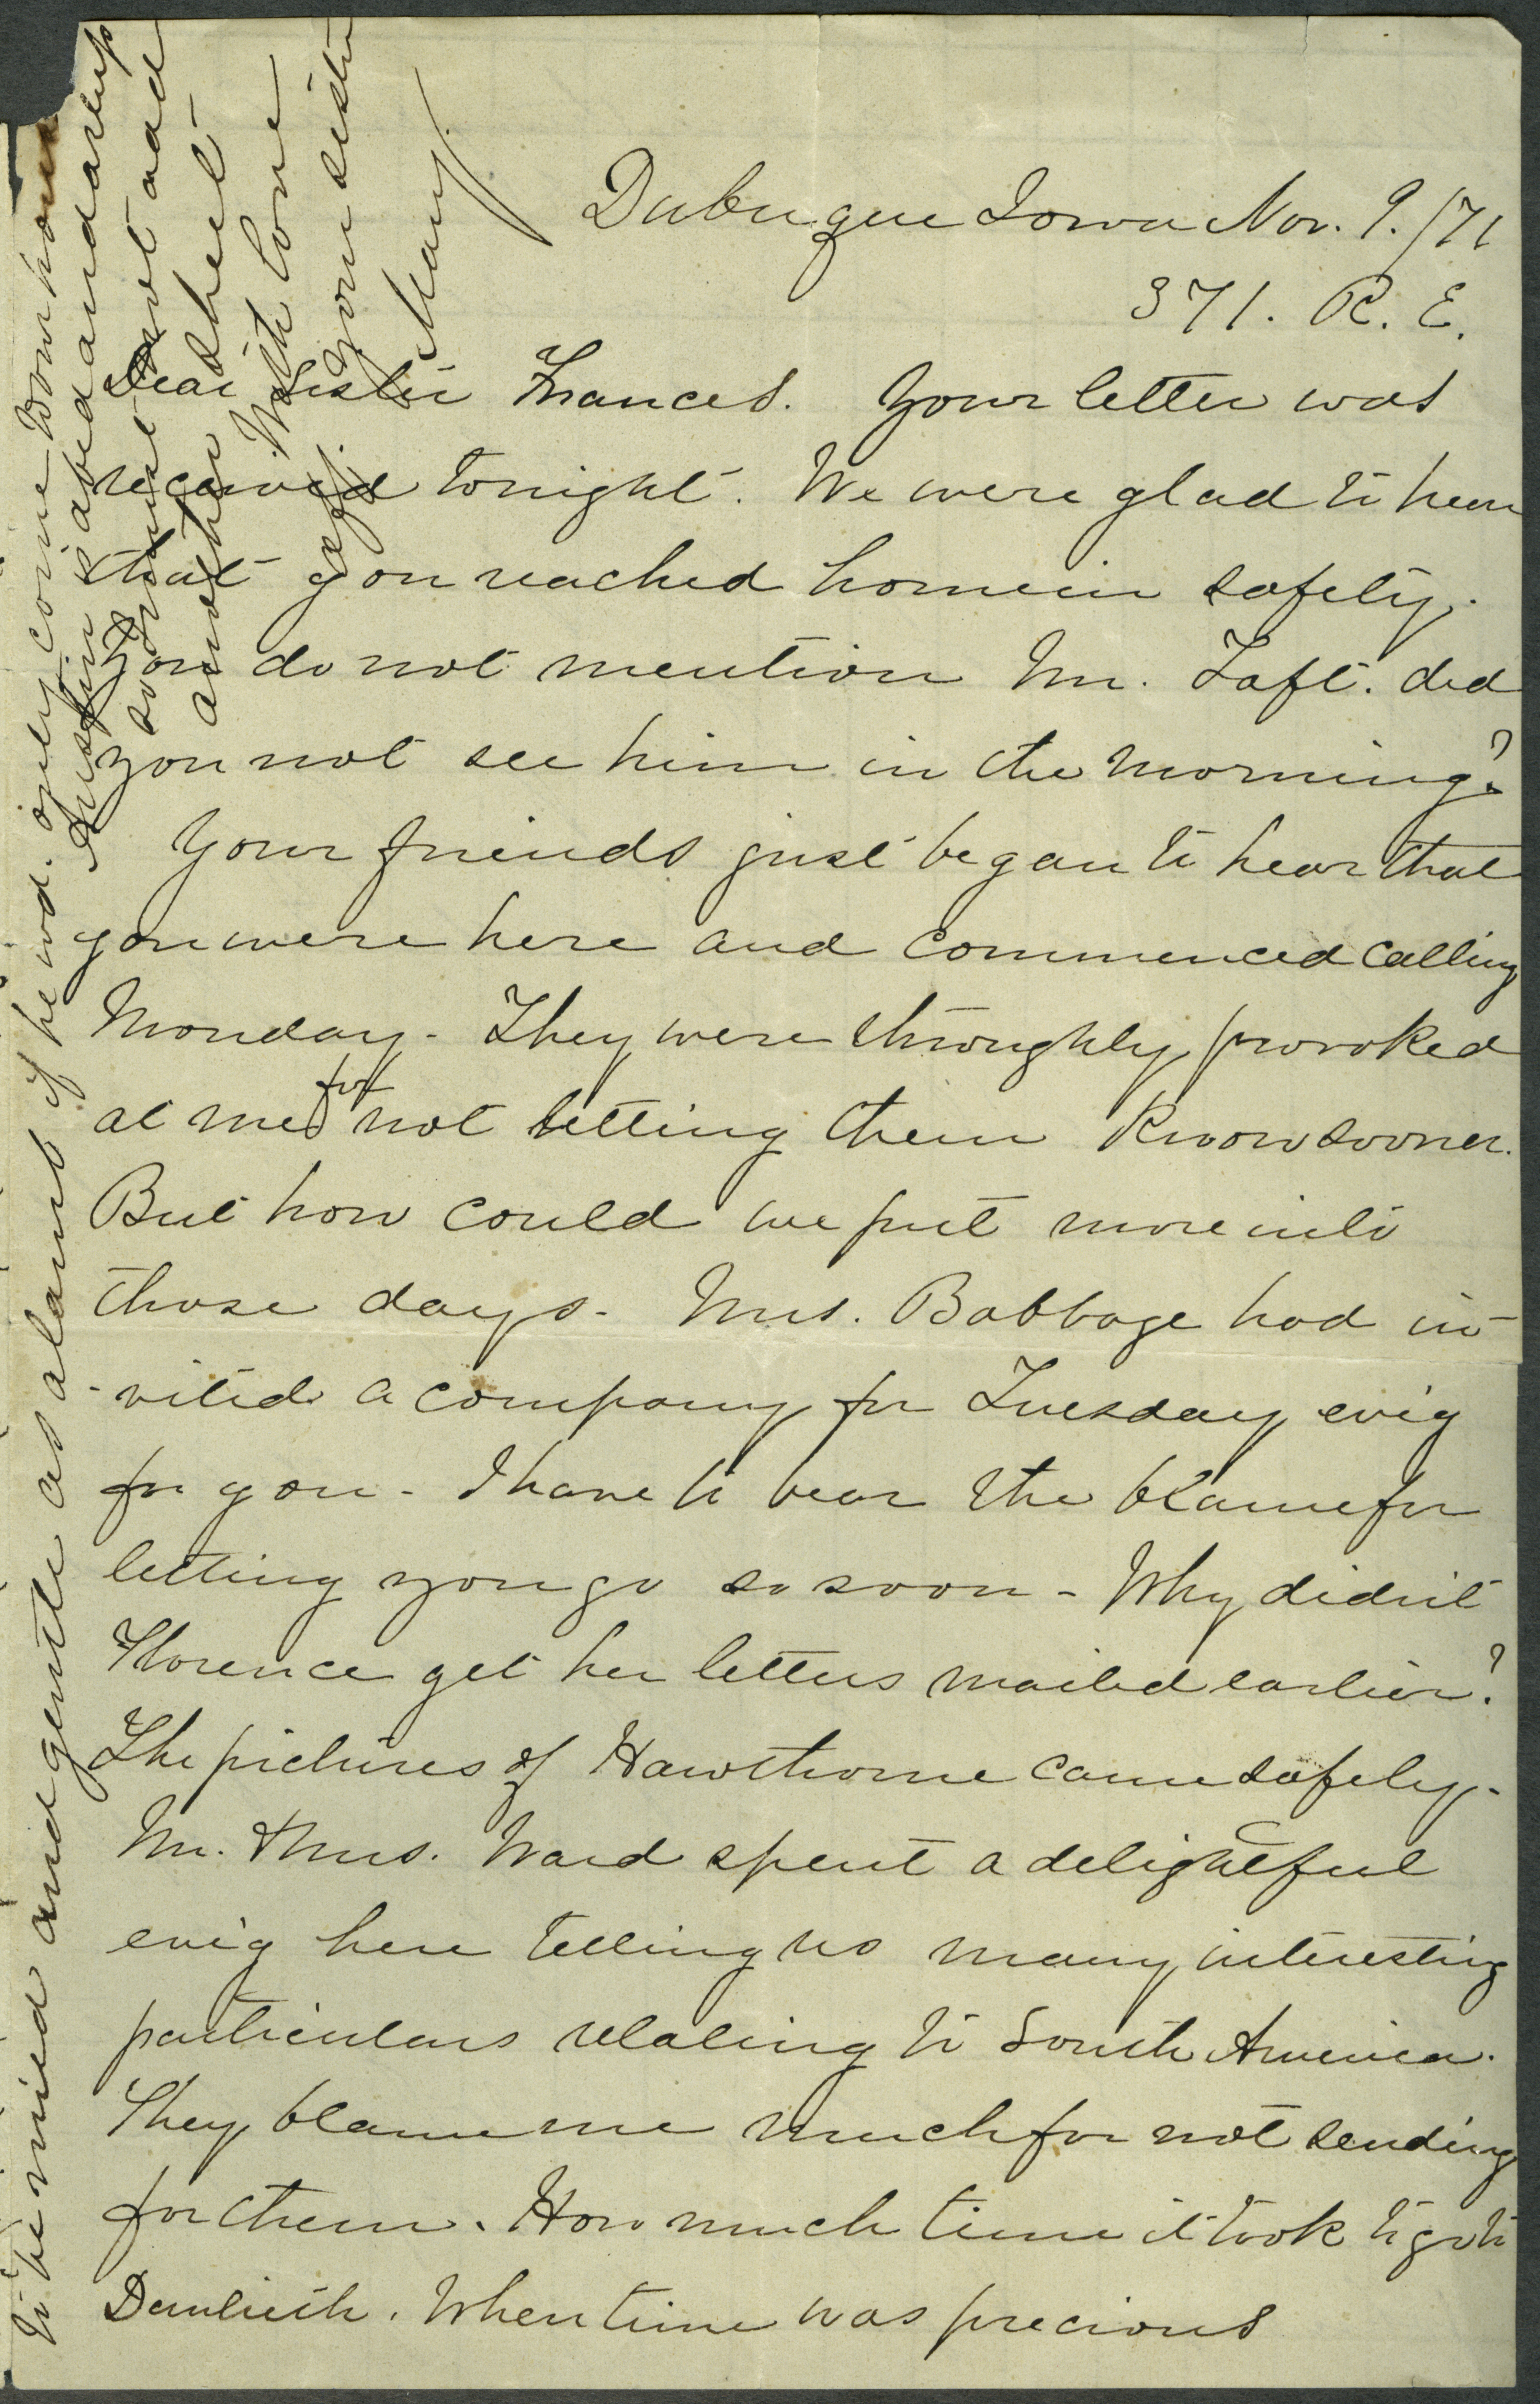 Dubuque Iowa Nov. 9. /71
371. R. E.
Dear Sister Frances. Your letter was
received tonight. We were glad to hear
that you reached home in safety.
You do not mention Mr. Taft. did
you not see him in the morning?
Your friends just began to hear that
you were here and commenced calling
Monday - They were throughly provoked
at me for not letting them know sooner.
But how could we put more into
those days - Mrs. Babbage had in-
-vited a company for Tuesday evig
for you - I have to bear the blame for
letting you go so soon - Why didn't
Florence get her letters mailed earlier?
The pictures of Hawthorne came safely -
Mr. & Mrs. Ward spent a delightful
evig here telling us many interesting
particulars relating to South America.
They blame me much for not sending
for them. How much time it took to go to
Dunlieith. When time was precious
to be nied and gentle as a lamb if he wd. only come down
Austin is abed and asleep
so I must not add
another sheet -
With love
your sister
Mary.